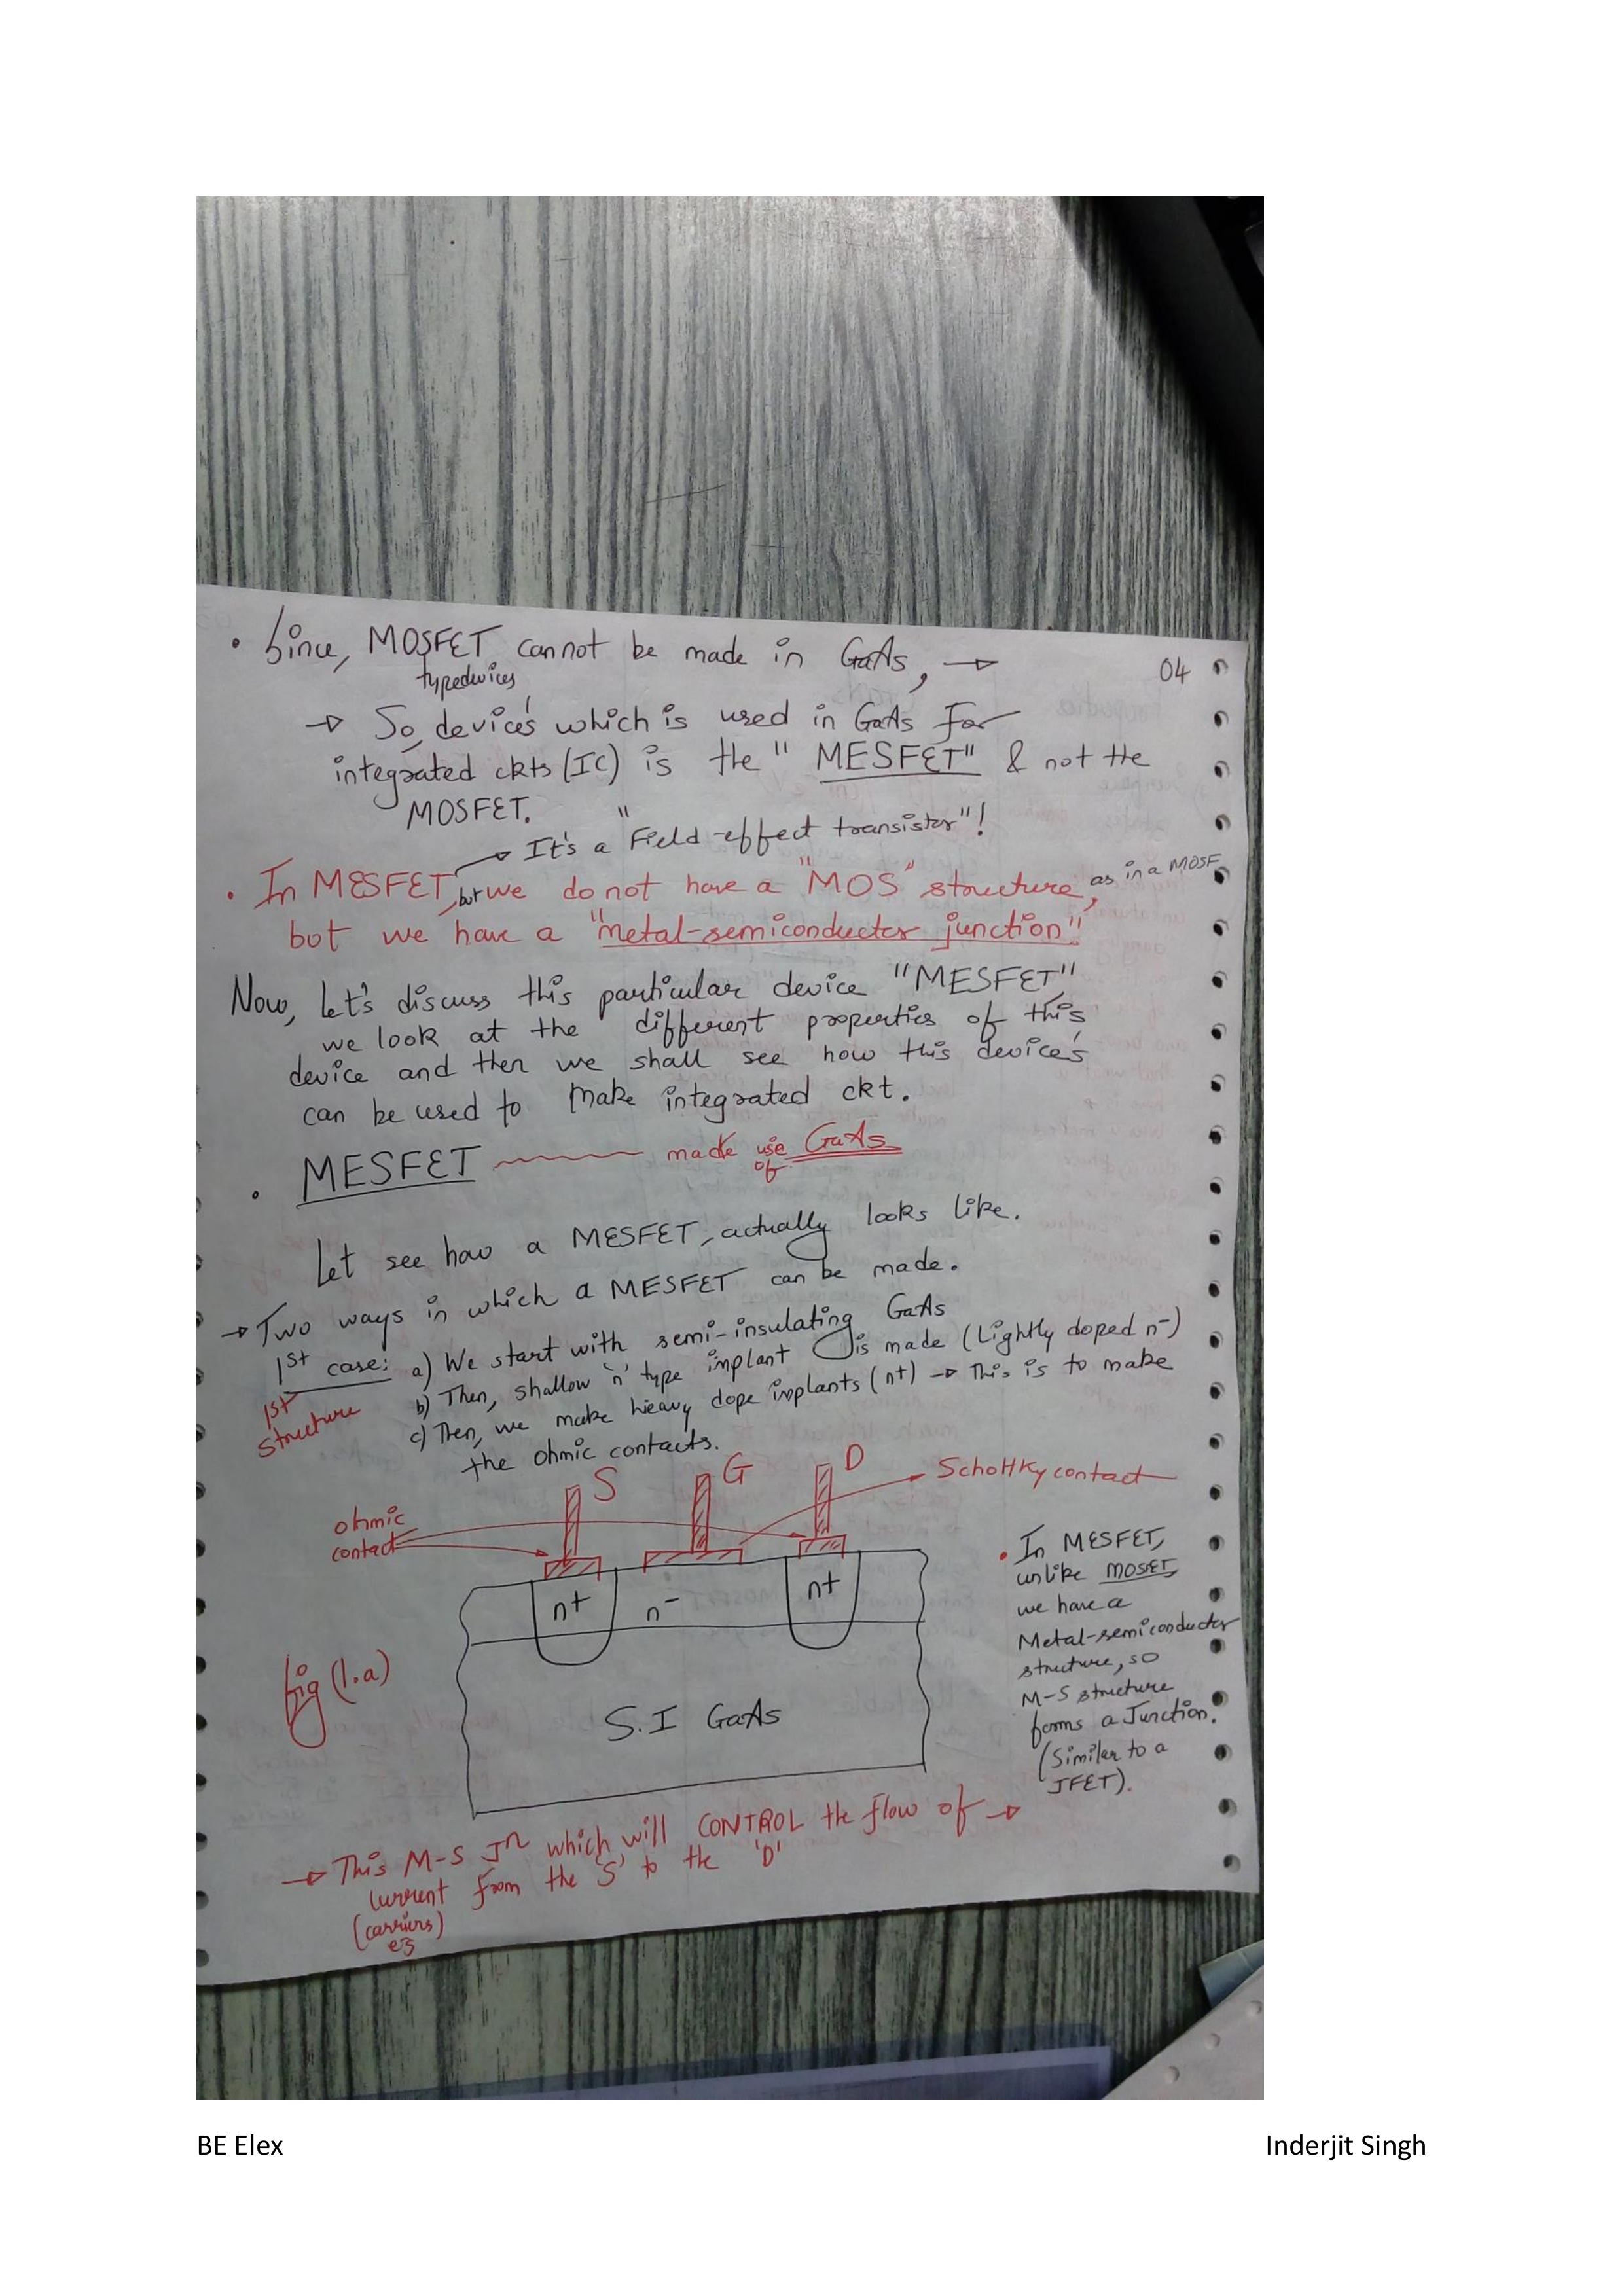 • Since, MOSFET cannot be made in GaAs, →
04
typedevices
→ So, device's which is used in GaAs For
integrated ckts (IC) is the "MESFET" & not the
MOSFET.
→ It's a "Field-effect transistor"!
• In MESFET, but we do not have a "MOS" structure, as in a MOSF
but we have a "metal-semiconductor junction"!
Now, Let's discuss this particular device "MESFET"
we look at the different properties of this
device and then we shall see how this device's
can be used to make integrated ckt.
• MESFET made use of GaAs
Let see how a MESFET, actually looks like.
→ Two ways in which a MESFET can be made.
1st case: a) We start with semi-insulating GaAs
1st structure
b) Then, shallow 'n' type implant is made (Lightly doped n-)
c) Then, we make hieavy dope implants (n+) → This is to make
the ohmic contacts.
S G D
Schottky contact
ohmic
contact
n+ n- n+
S.I GaAs
fig (1.a)
• In MESFET,
unlike MOSFET,
we have a
Metal-semiconductor
structure, so
M-S structure
forms a Junction.
(Similar to a
JFET).
→ This M-S Jn which will CONTROL the flow of →
current from the 'S' to the 'D'
(carriers)
BE Elex
Inderjit Singh